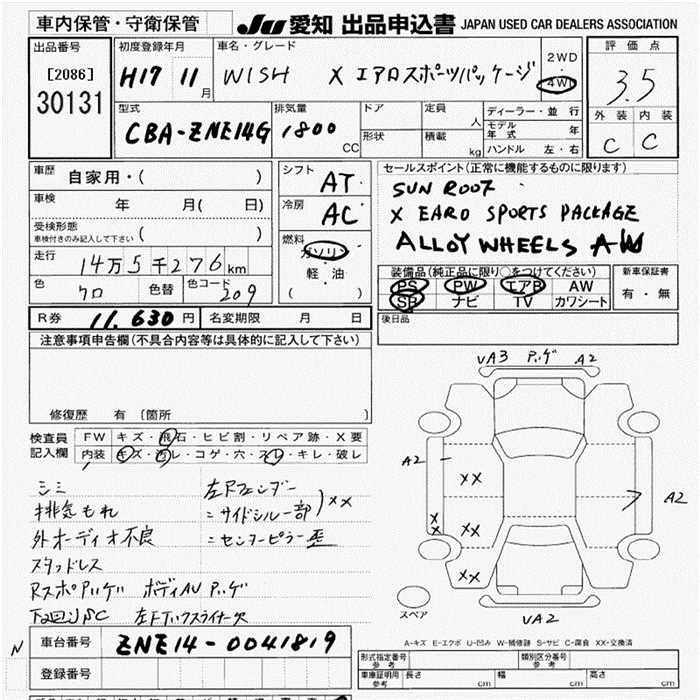 車内保管・守衛保管 JU 愛知 出品申込書 JAPAN USED CAR DEALERS ASSOCIATION
出品番号 初度登録年月 車名・グレード 2WD 評価点
[2086] H17 11月 WISH X エアロスポーツパッケージ 4WD 3.5
30131
型式 排気量 ドア 定員 人 ディーラー・並行 外装 内装
CBA-ZNE14G 1800 CC 形状 積載 kg モデル年式 年 C C
ハンドル 左・右
車歴 自家用・( ) シフト AT セールスポイント(正常に機能するものに限ります)
車検 年 月( 日) 冷房 AC SUN ROOF
受検形態 ( ) X EARO SPORTS PACKAGE
車検付きのみ記入して下さい
走行 14万5千276km 燃料 ガソリン ALLOY WHEELS AW
色 クロ 色替 色コード 209 軽・油
( )
装備品(純正品に限り○をつけてください) 新車保証書
PS PW エアB AW 有・無
SR ナビ TV カワシート
R券 11,630円 名変期限 月 日 後日品
注意事項申告欄(不具合内容等は具体的に記入して下さい)
修復歴 有 〔箇所 〕
検査員記入欄 FW キズ・飛石・ヒビ割・リペア跡・X要
内装 キズ・コゲ・穴・スレ・キレ・破レ
シミ 左Fフェンダー
排気もれ サイドシル一部 XX
外オーディオ不良 センターピラー歪
スタッドレス
ボディAU
UA3 A2
A2 XX A2
XX XX
XX
UA2
スペア
A-キズ E-エクボ U-凹み W-補修跡 S-サビ C-腐食 XX-交換済
N 車台番号 ZNE14-0041819
登録番号
形式指定番号 参考 類別区分番号 参考
車庫証明用 参考 長さ cm 幅 cm 高さ cm